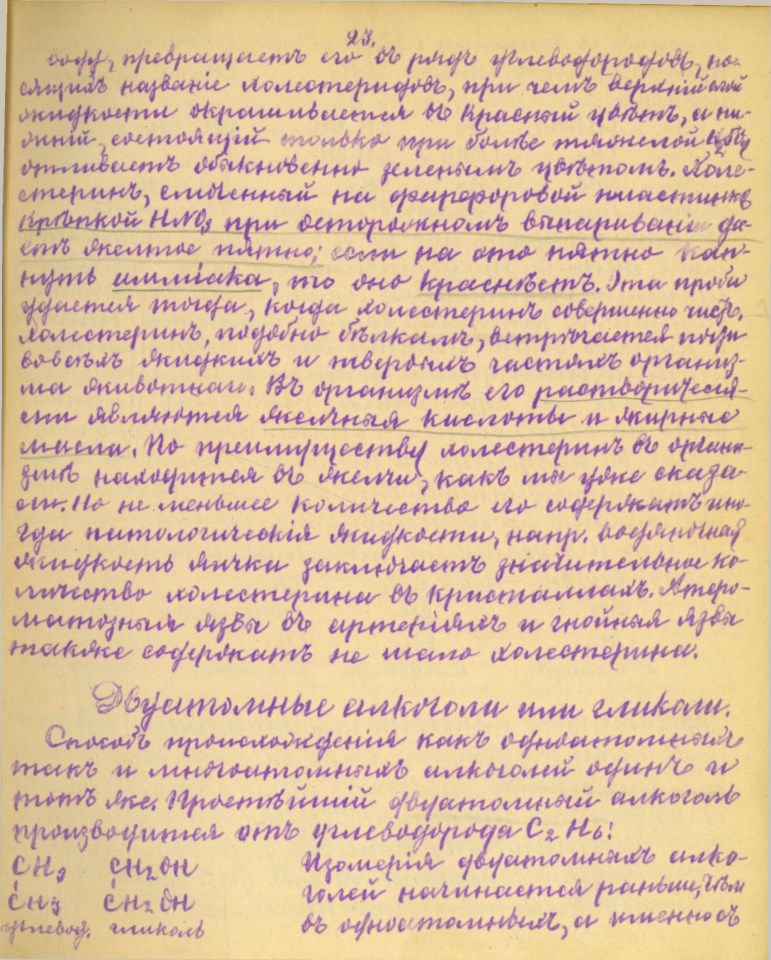 23.
воду, превращаетъ его въ рядъ углеводородовъ, но-
сящихъ названіе холестеридовъ, при чемъ верхній слой
жидкости окрашивается въ красный цвѣтъ, а ни-
жній, состоящій только при болѣе тяжелой
отливаетъ обыкновенно зеленымъ цвѣтомъ. Холе-
стеринъ, смѣшенный на фарфоровой пластинкѣ
крѣпкой HNO3 при осторожномъ выпариваніи да-
етъ желтое пятно; если на это пятно кап-
нуть амміака, то оно краснѣетъ. Эта проба
удается тогда, когда холестеринъ совершенно чистъ.
Холестеринъ, подобно бѣлкамъ, встрѣчается почти
во всѣхъ жидкихъ и твердыхъ частяхъ организ-
ма животнаго. Въ организмѣ его растворителя-
ми являются желчныя кислоты и жирные
масла. По преимуществу холестеринъ въ орган-
измѣ находится въ желчи, какъ мы уже сказа-
ли. Но не меньшее количество его содержатъ ино-
гда патологическія жидкости, напр. водяночная
жидкость яичка заключаетъ значительное ко-
личество холестерина въ кристаллахъ. Атеро-
матозныя язвы въ артеріяхъ и гнойныя язвы
также содержатъ не мало холестерина.
Двуатомные алкоголи или гликоли.
Способъ происхожденія какъ одноатомныхъ
такъ и многоатомныхъ алкоголей одинъ и
тотъ же. Простѣйшій двуатомный алкоголь
производится отъ углеводорода C2H6:
CH3 CH2OH Изомерія двуатомныхъ алко-
CH3 CH2OH голей начинается раньше, чѣм
углевод. гликоль въ одноатомныхъ, а именно съ